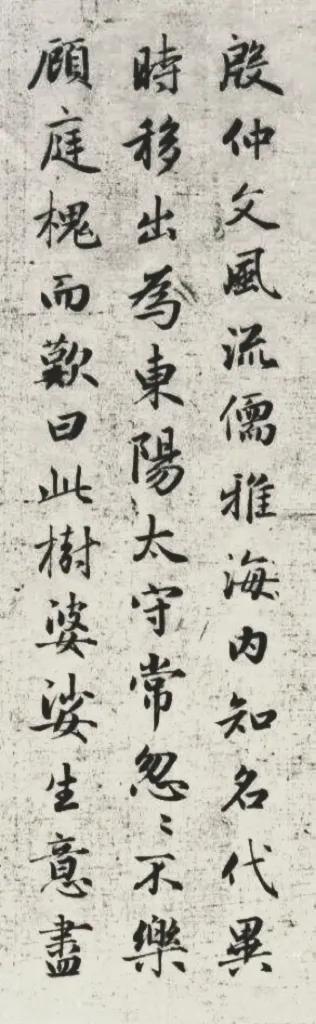 殷仲文風流儒雅海内知名代異
時移出為東陽太守常忽〻不樂
顧庭槐而歎曰此樹婆娑生意盡